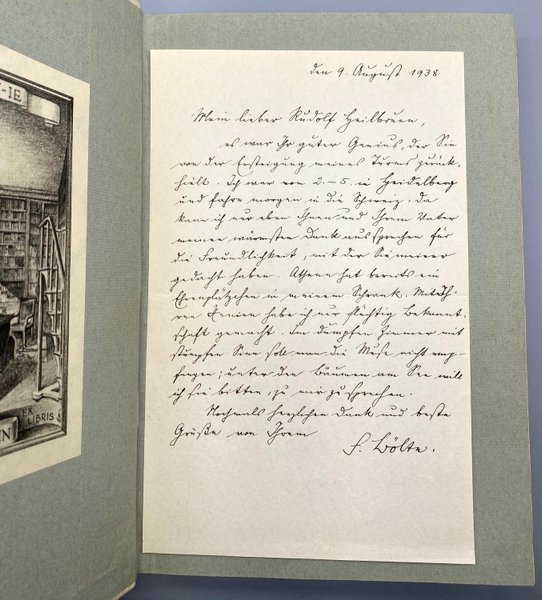 -IE
EX
LIBRIS
N
den 9. August 1938
Mein lieber Rudolf Heilbrunn,
es war Ihr guter Genius, der Sie
von der Ersteigung meines Turms zurück-
hielt. Ich war vom 2.-5. in Heidelberg
und fahre morgen in die Schweiz. Da
kann ich nur eben Ihnen und Ihrem Vater
meinen wärmsten Dank aussprechen für
die Freundlichkeit, mit der Sie meiner
gedacht haben. Athene hat bereits ein
Ehrenplätzchen in meinem Schrank. Mit Ih-
ren Xenien habe ich nur flüchtig Bekannt-
schaft gemacht. Im dumpfen Zimmer mit
stumpfem Sinn soll man die Muse nicht emp-
fangen; unter den Bäumen am See will
ich sie bitten, zu mir zu sprechen.
Nochmals herzlichen Dank und beste
Grüße von Ihrem
F. Bölte.